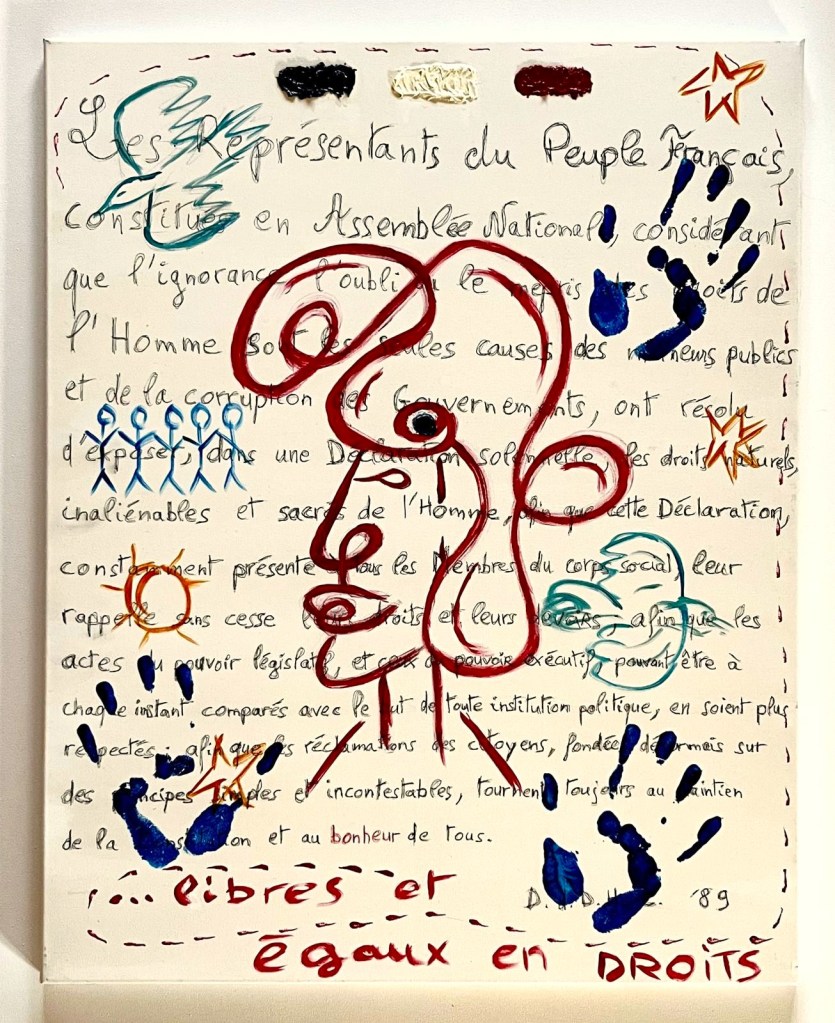 Les Représentants du Peuple Français,
constitués en Assemblée National, considérant
que l'ignorance l'oubli ou le mépris des droits de
l'Homme sont les seules causes des malheurs publics
et de la corruption des Gouvernements, ont résolu
d'exposer, dans une Déclaration solennelle, les droits naturels,
inaliénables et sacrés de l'Homme, afin que cette Déclaration,
constamment présente tous les Membres du corps social, leur
rappelle sans cesse leurs droits et leurs devoirs; afin que les
actes du pouvoir législatif, et ceux du pouvoir exécutif, pouvant être à
chaque instant comparés avec le but de toute institution politique, en soient plus
respectés; afin que les réclamations des citoyens, fondées désormais sur
des principes simples et incontestables, tournent toujours au maintien
de la Constitution et au bonheur de tous.
... libres et
D.D.H.C. '89
égaux en DROITS